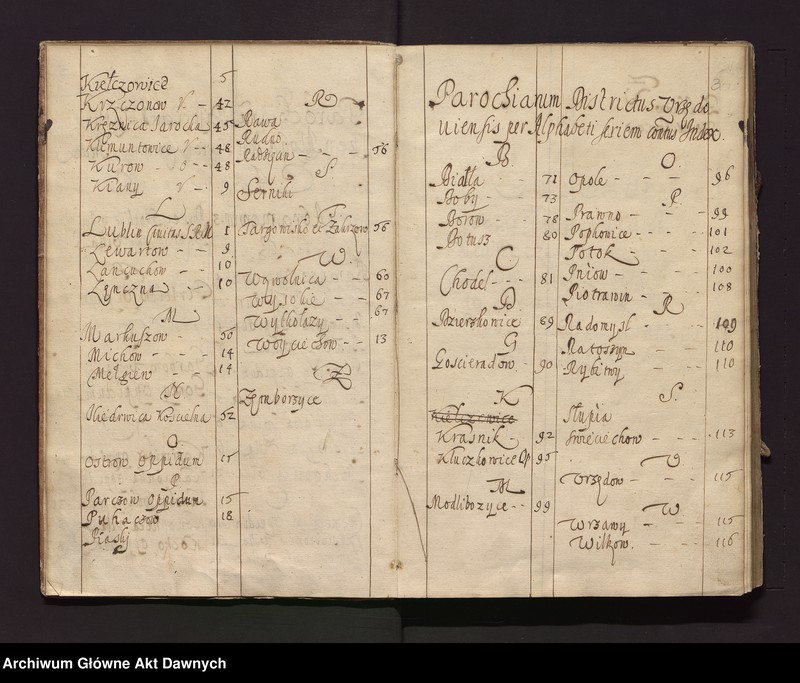 Kiełczowice 5
Krzczonow V. — 42
Krężnica Jarocka 45
Klemuntowice V — 48
Kurow 48
Kiany V — 9
L
Lublin Civitas 1
Lewartow — 9
Łancuchow — 10
Łęnczna — 10
M
Markuszow — 50
Michow — 14
Mełgiew 14
N
Niedrwica Koscielna 52
O.
Ostrow oppidum 15
P
Parczow oppidum 15
Puhaczow 18
Piaski
R
Rawa
Rudno
Radzięcin — — 56
S.
Serniki
T
Targowisko et Zakrzow 56
W.
Wąwolnica — — 60
Wysokie — — 67
Wylkołazy — — 67
Woyciechow — — 13
Z
Zęmborzyce
3
Parochiarum Districtus Vrzędo
uiensis per Alphabeti seriem Index.
B.
Bialla — — 71
Boby — — 73
Borow — — 78
Botusz 80
C.
Chodel — — 81
D
Dzierzkowice 89
G
Goscieradow — 90
K
Kiełczowice
Krasnik 92
Kluczkowice Op. 95
M
Modliborzyce — — 99
O.
Opole — — — 96
P.
Prawno — — 99
Popkowice — — — 101
Potok — — 102
Pniow — — — 100
Piotrawin — 108
R
Radomysl — — 109
Ratoszyn — — 110
Rybitwy — 110
S.
Słupia
Swieciechow — — — 113
V.
Vrzędow — — — 115
W
Wrzawy — — — 115
Wilkow. — — — 116
Archiwum Główne Akt Dawnych